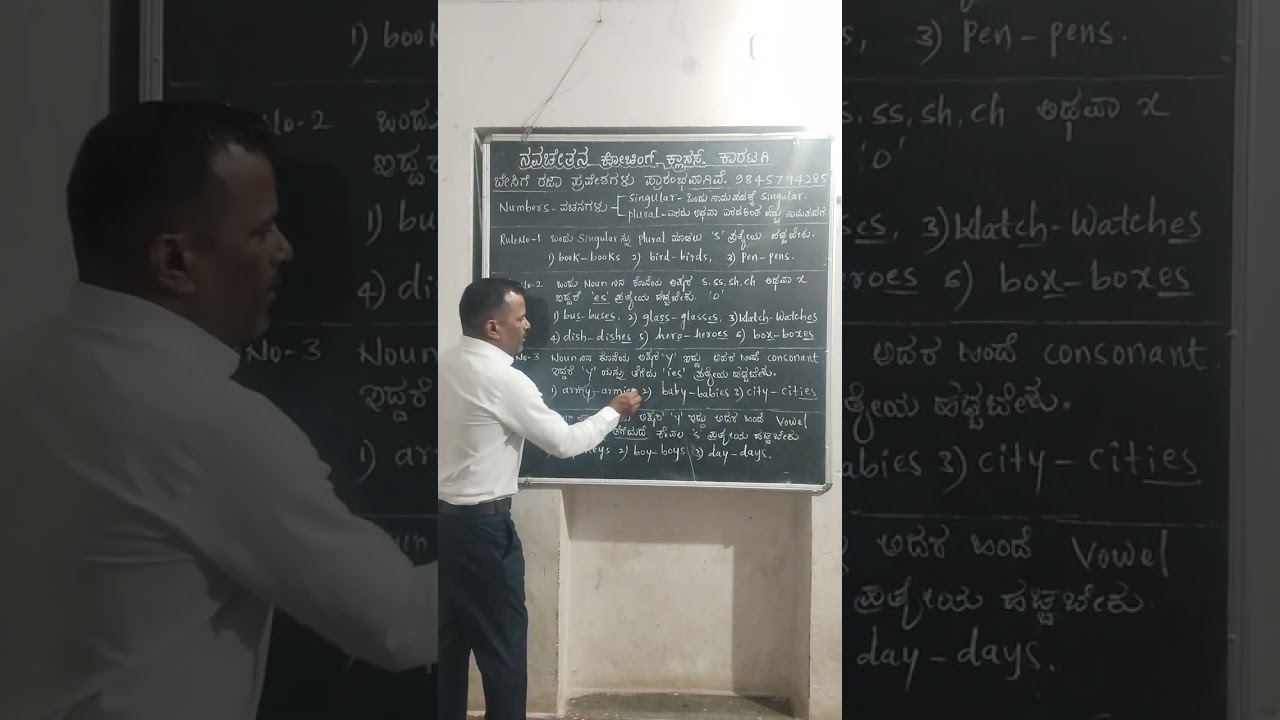 ನವಚೇತನ ಕೋಚಿಂಗ್ ಕ್ಲಾಸಸ್ ಕಾರಟಗಿ.
ಬೇಸಿಗೆ ರಜಾ ಪ್ರವೇಶಗಳು ಪ್ರಾರಂಭವಾಗಿವೆ. 9845794285
Numbers - ವಚನಗಳು - singular - ಒಂದು ನಾಮಪದಕ್ಕೆ singular.
plural - ಎರಡು ಅಥವಾ ಎರಡಕ್ಕಿಂತ ಹೆಚ್ಚು ನಾಮಪದಗ
Rule No-1 ಒಂದು Singular ನ್ನು plural ಮಾಡಲು 's' ಪ್ರತ್ಯೇಯ ಹಚ್ಚಬೇಕು.
1) book - books 2) bird - birds, 3) Pen - pens.
No-2 ಒಂದು Noun ನಿನ ಕೊನೆಯ ಅಕ್ಷರ s, ss, sh, ch ಅಥವಾ x
ಇದ್ದರೆ 'es' ಪ್ರತ್ಯೇಯ ಹಚ್ಚಬೇಕು. 'o'
1) bus - buses, 2) glass - glasses, 3) Watch - Watches
4) dish - dishes 5) hero - heroes 6) box - boxes
No-3 Noun ನಿನ ಕೊನೆಯ ಅಕ್ಷರ 'y' ಇದ್ದು ಅದರ ಹಿಂದೆ consonant
ಇದ್ದರೆ 'y' ಯನ್ನು ತೆಗೆದು 'ies' ಪ್ರತ್ಯೇಯ ಹಚ್ಚಬೇಕು.
1) army - armies 2) baby - babies 3) city - cities
ಅಕ್ಷರ 'y' ಇದ್ದು ಅದರ ಹಿಂದೆ Vowel
ತೆಗೆಯದೆ ಕೇವಲ 's' ಪ್ರತ್ಯೇಯ ಹಚ್ಚಬೇಕು
keys 2) boy - boys 3) day - days.